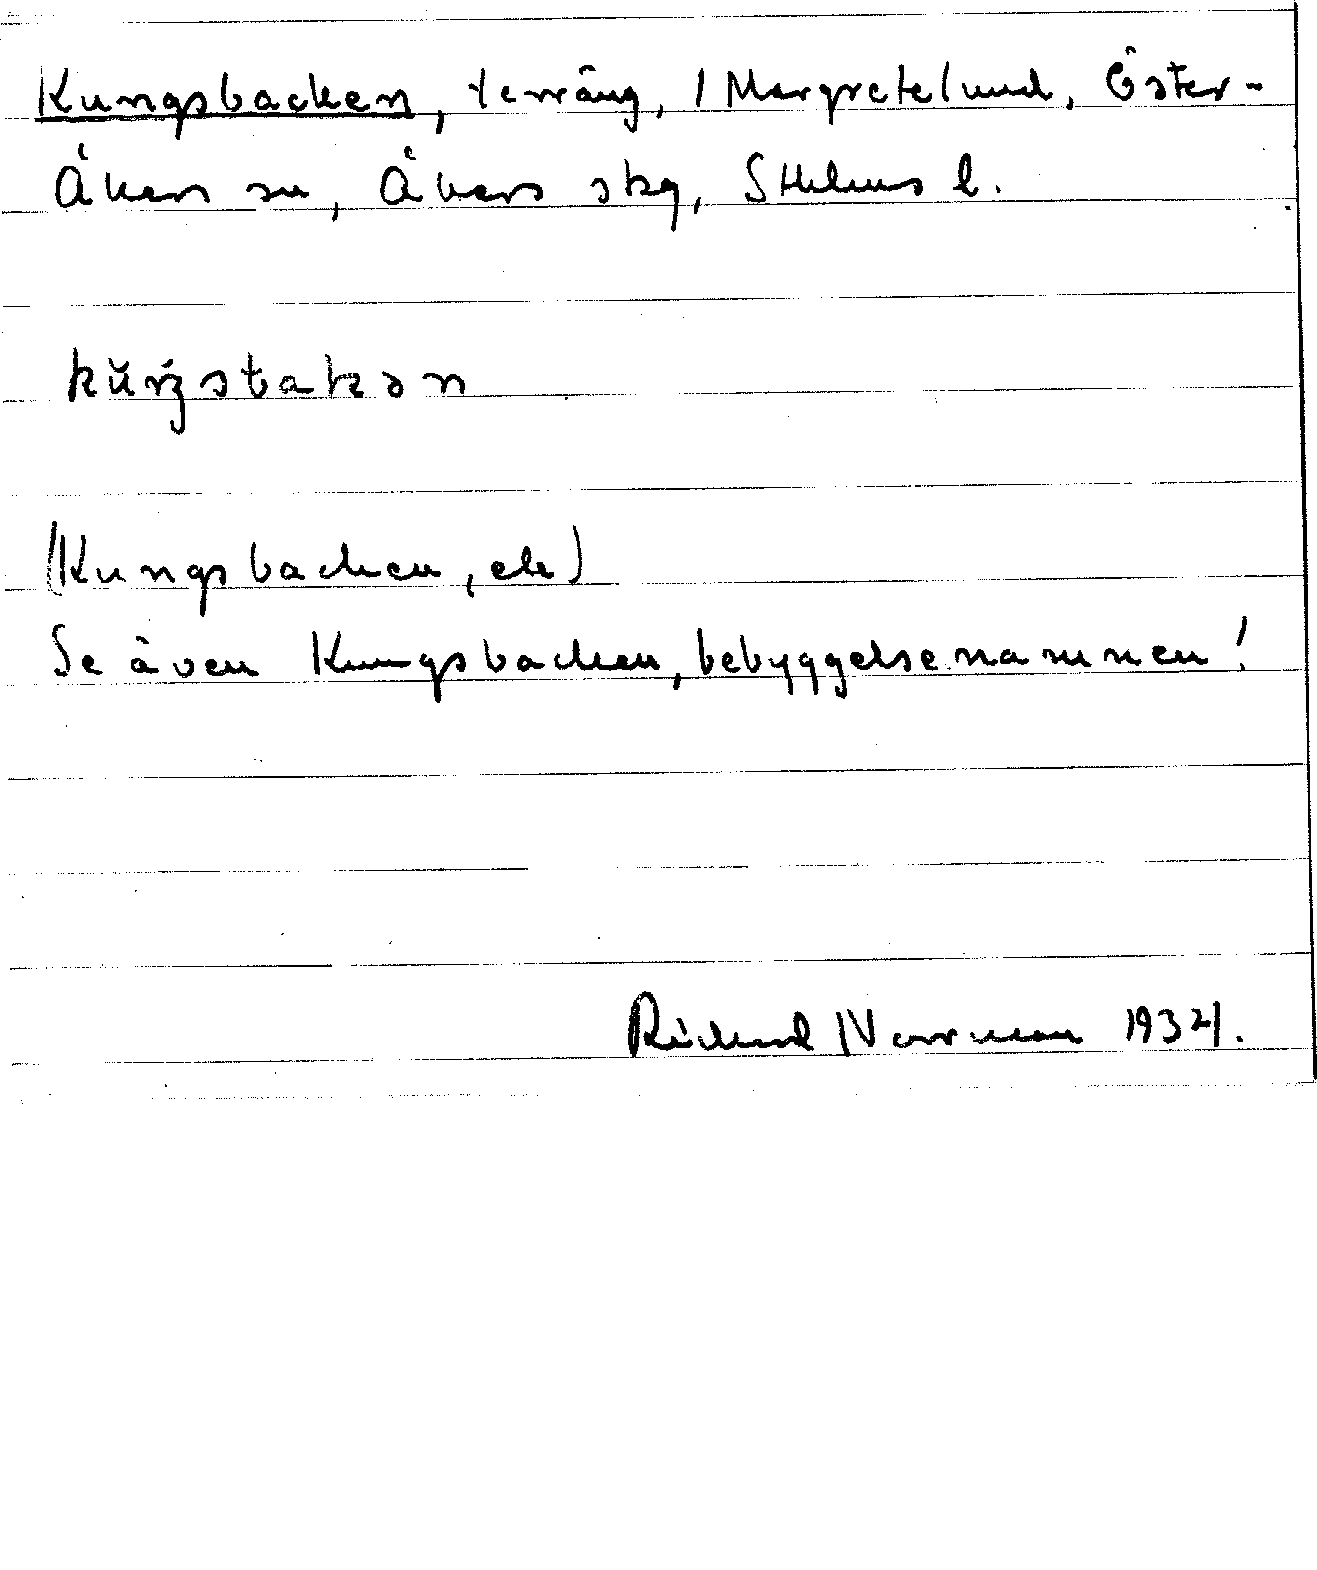 Kungsbacken, terräng, / Margretelund, Öster-
Åkers sn, Åkers skg, Sthlms l.
kŭŋstakən
(Kungsbacken, ek)
Se även Kungsbacken, bebyggelsenamnen!
Rickard Norrman 1934.